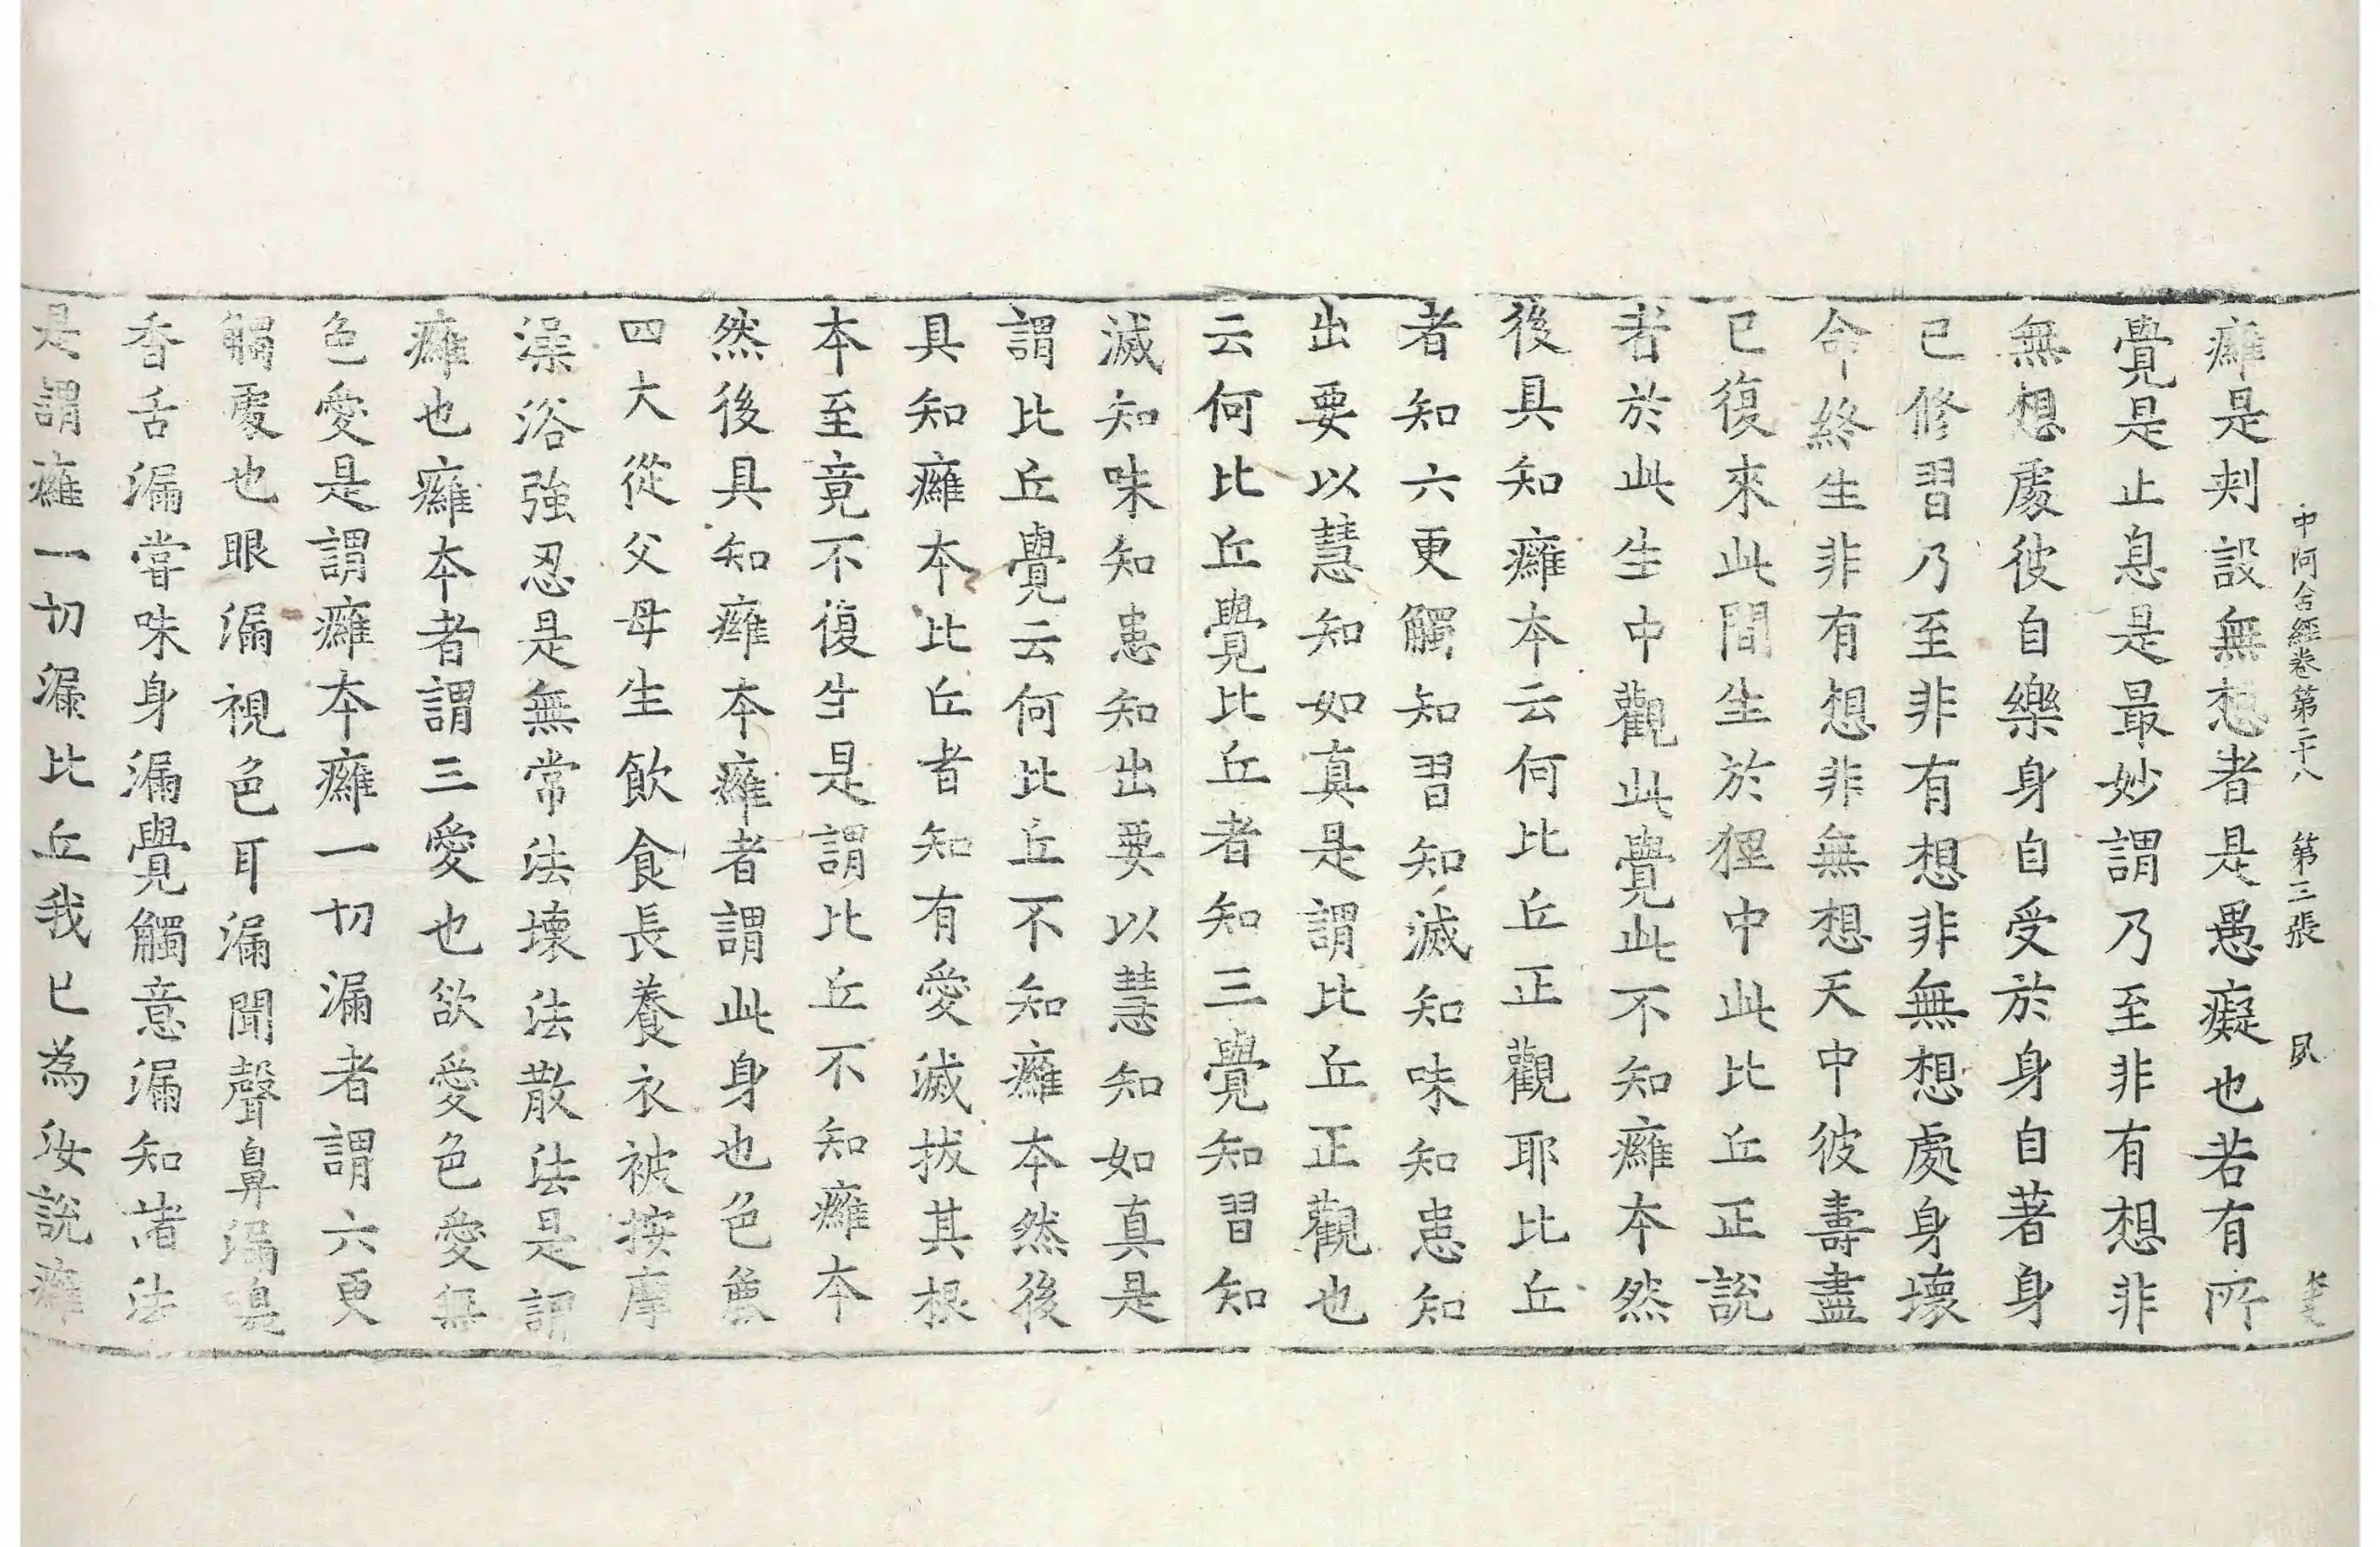 中阿含經卷第二十八　第三張　夙
癰是刾設無想者是愚癡也若有所
覺是止息是最妙謂乃至非有想非
無想處彼自樂身自受於身自著身
已修習乃至非有想非無想處身壞
命終生非有想非無想天中彼壽盡
已復來此間生於狸中此比丘正說
者於此生中觀此覺此不知癰本然
後具知癰本云何比丘正觀耶比丘
者知六更觸知習知滅知味知患知
出要以慧知如真是謂比丘正觀也
云何比丘覺比丘者知三覺知習知
滅知味知患知出要以慧知如真是
謂比丘覺云何比丘不知癰本然後
具知癰本比丘者知有愛滅拔其根
本至竟不復生是謂比丘不知癰本
然後具知癰本癰者謂此身也色麁
四大從父母生飲食長養衣被按摩
澡浴強忍是無常法壞法散法是謂
癰也癰本者謂三愛也欲愛色愛無
色愛是謂癰本癰一切漏者謂六更
觸處也眼漏視色耳漏聞聲鼻漏嗅
香舌漏嘗味身漏覺觸意漏知諸法
是謂癰一切漏比丘我已為汝說癰